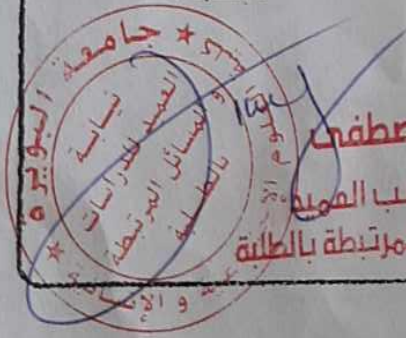 جامعة البويرة
نيابة
العميد للدراسات
و المسائل المرتبطة
بالطلبة
ب العميد
مرتبطة بالطلبة